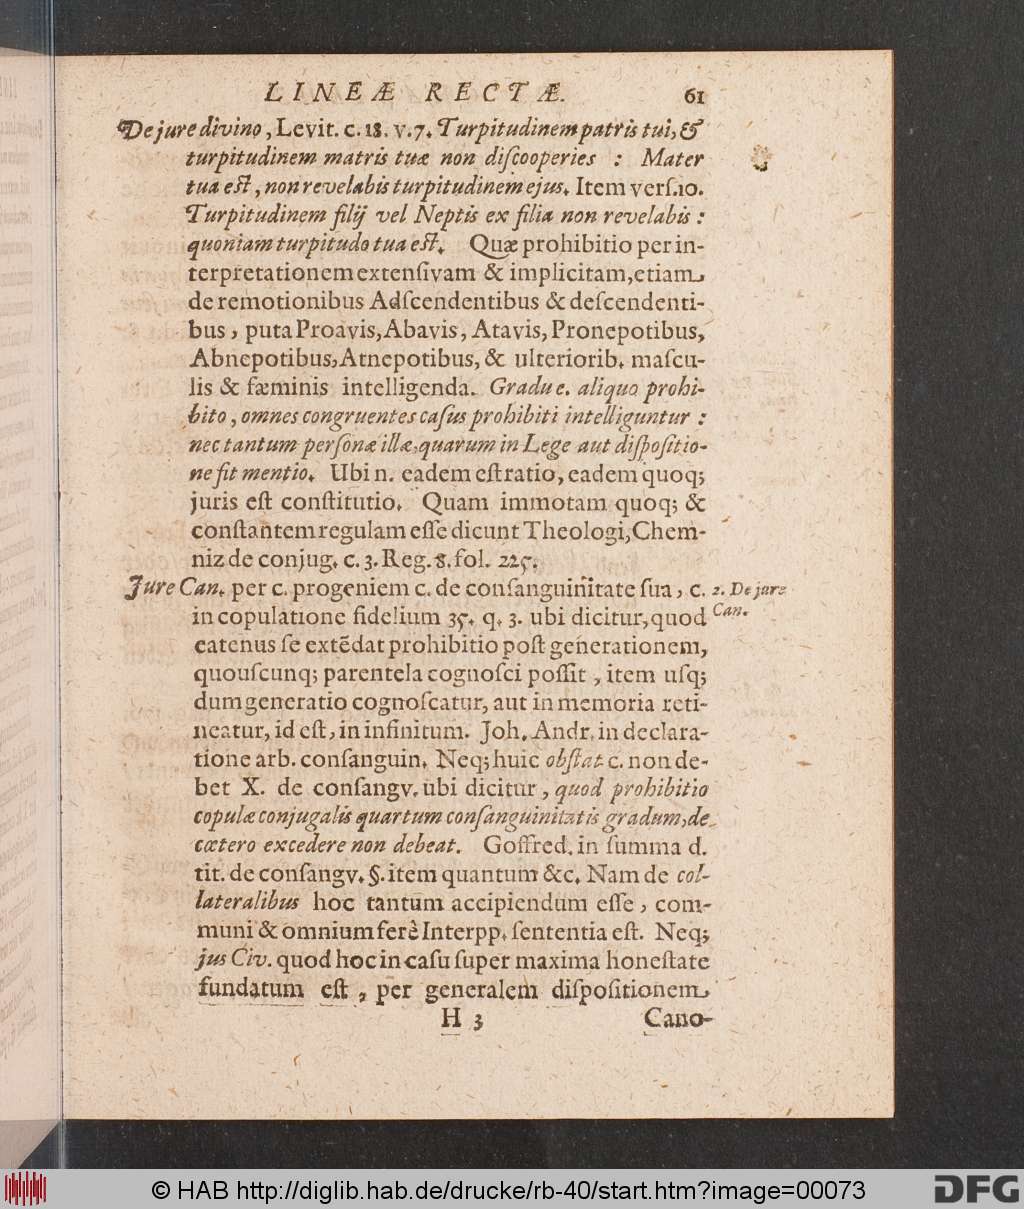 LINEÆ RECTÆ. 61
De jure divino, Levit. c. 18. v. 7. Turpitudinem patris tui, &
turpitudinem matris tuæ non diſcooperies : Mater
tua eſt, non revelabis turpitudinem ejus. Item verſ. 10.
Turpitudinem filij vel Neptis ex filia non revelabis :
quoniam turpitudo tua eſt. Quæ prohibitio per in-
terpretationem extenſivam & implicitam, etiam
de remotionibus Adſcendentibus & deſcendenti-
bus, puta Proavis, Abavis, Atavis, Pronepotibus,
Abnepotibus, Atnepotibus, & ulteriorib. maſcu-
lis & fæminis intelligenda. Gradu e. aliquo prohi-
bito, omnes congruentes caſus prohibiti intelliguntur :
nec tantum perſonæ illæ, quarum in Lege aut diſpoſitio-
ne fit mentio. Ubi n. eadem eſt ratio, eadem quoq;
juris eſt conſtitutio. Quam immotam quoq; &
conſtantem regulam eſſe dicunt Theologi, Chem-
niz de conjug. c. 3. Reg. 8. fol. 225.
Jure Can. per c. progeniem c. de conſanguinitate ſua, c.
2. De jure
Can.
in copulatione fidelium 35. q. 3. ubi dicitur, quod
eatenus ſe extēdat prohibitio poſt generationem,
quouſcunq; parentela cognoſci poſſit, item uſq;
dum generatio cognoſcatur, aut in memoria reti-
neatur, id eſt, in infinitum. Joh. Andr. in declara-
tione arb. conſanguin. Neq; huic obſtat c. non de-
bet X. de conſangv. ubi dicitur, quod prohibitio
copulæ conjugalis quartum conſanguinitatis gradum, de
cætero excedere non debeat. Goffred. in ſumma d.
tit. de conſangv. §. item quantum &c. Nam de col-
lateralibus hoc tantum accipiendum eſſe, com-
muni & omnium ferè Interpp. ſententia eſt. Neq;
jus Civ. quod hoc in caſu ſuper maxima honeſtate
fundatum eſt, per generalem diſpoſitionem
H 3 Cano-
© HAB http://diglib.hab.de/drucke/rb-40/start.htm?image=00073
DFG